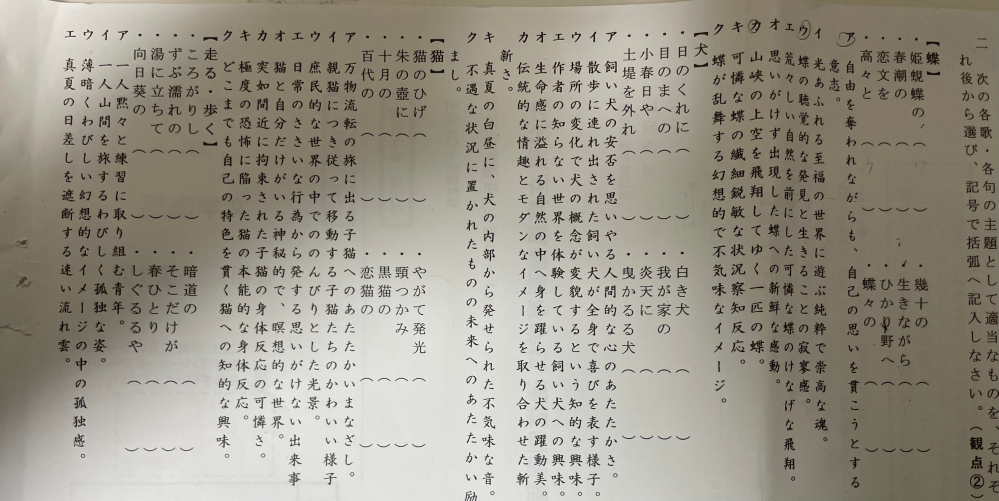 二　次の各歌・各句の主題として適当なものを、それぞ
れ後から選び、記号で括弧へ記入しなさい。（観点②）
【蝶】
・姫蜆蝶の（　）　・幾十の（　）
・春潮の（　）　・生きながら（　）
・恋文を（　）　・ひかり野へ（　）
・高々と（　）　・蝶々の（　）
ア　自由を奪われながらも、自己の思いを貫こうとする
意志。
イ　光あふれる至福の世界に遊ぶ純粋で崇高な魂。
ウ　蝶の聴覚的な発見と生きることの寂寥感。
エ　荒々しい自然を前にした可憐な蝶のけなげな飛翔。
オ　思いがけず出現した蝶への新鮮な感動。
カ　山峡の上空を飛翔してゆく一匹の蝶。
キ　可憐な蝶の繊細鋭敏な状況察知反応。
ク　蝶が乱舞する幻想的で不気味なイメージ。
【犬】
・日のくれに（　）　・白き犬（　）
・目のまへの（　）　・我が家の（　）
・小春日や（　）　・炎天に（　）
・土堤を外れ（　）　・曳かるる犬（　）
ア　飼い犬の安否を思いやる人間的な心のあたたかさ。
イ　散歩に連れ出された飼い犬が全身で喜びを表す様子。
ウ　場所の変化で犬の概念が変貌するという知的な興味。
エ　作者の知らない世界を体験している飼い犬への興味。
オ　生命感に溢れる自然の中へ身を躍らせる犬の躍動美。
カ　伝統的な情趣とモダンなイメージを取り合わせた斬
新さ。
キ　真夏の白昼に、犬の内部から発せられた不気味な音。
ク　不遇な状況に置かれたものの未来へのあたたかい励
まし。
【猫】
・猫のひげ（　）　・やがて発光（　）
・朱の壺に（　）　・頸つかみ（　）
・十月の（　）　・黒猫の（　）
・百代の（　）　・恋猫の（　）
ア　万物流転の旅に出る子猫へのあたたかいまなざし。
イ　親猫につき従って移動する子猫たちのかわいい様子
ウ　庶民的な世界の中でののんびりとした光景。
エ　日常のささいな行為から発する思いがけない出来事
オ　猫と自分だけがいる神秘的で、瞑想的な世界。
カ　突如間近に拘束された子猫の身体反応の可憐さ。
キ　極度の恐怖に陥った猫の本能的な身体反応。
ク　どこまでも自己の特色を貫く猫への知的な興味。
【走る・歩く】
・ころがりし（　）　・暗道の（　）
・ずぶ濡れの（　）　・そこだけが（　）
・湯に立ちて（　）　・春ひとり（　）
・向日葵の（　）　・しぐるるや（　）
ア　一人黙々と練習に取り組む青年。
イ　一人山間を旅するわびしく孤独な姿。
ウ　薄暗くわびしい幻想的なイメージの中の孤独感。
エ　真夏の日差しを遮断する速い流れ雲。